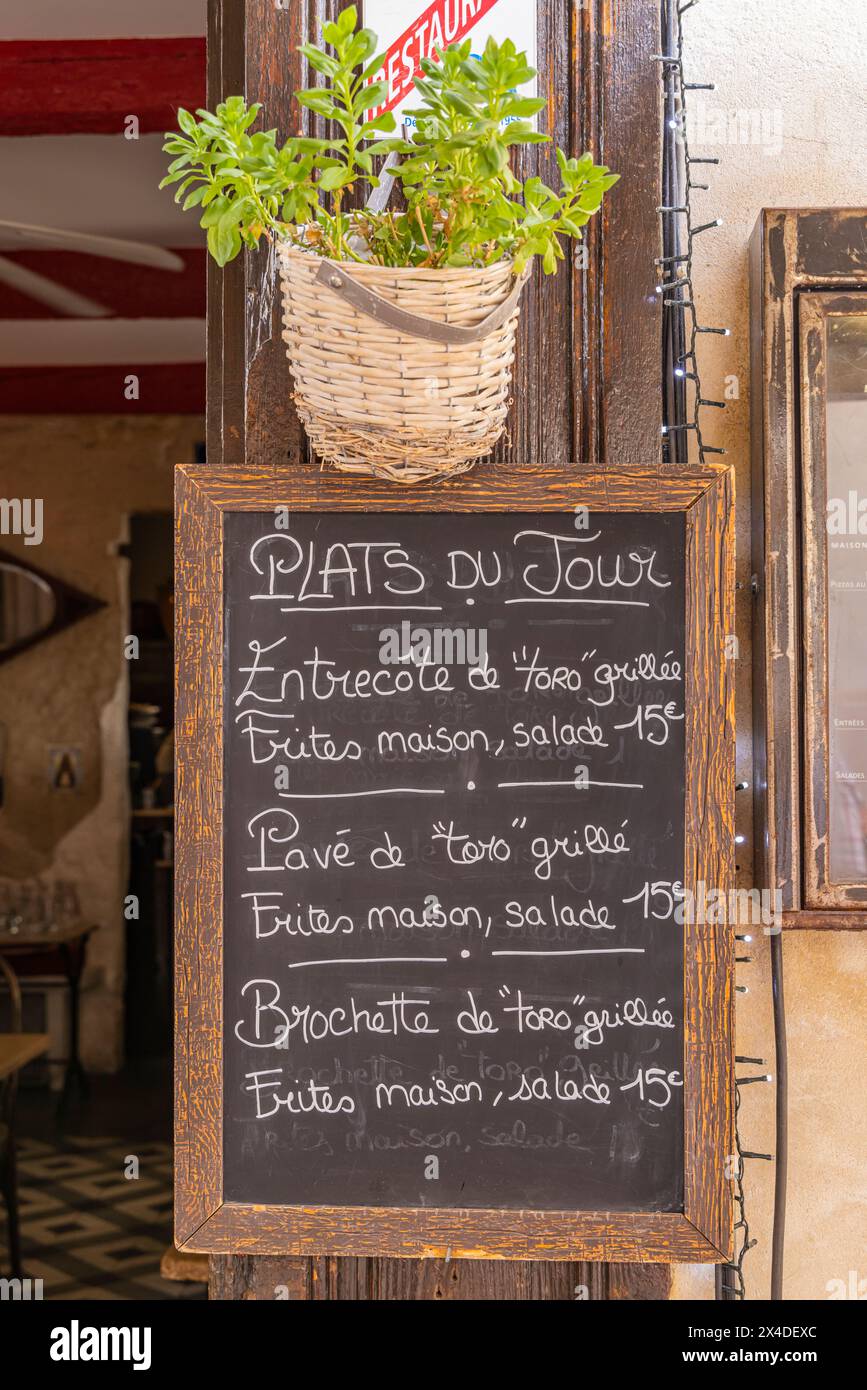 RESTAUR
PLATS DU JOUR
Entrecôte de "toro" grillée
Frites maison, salade 15€
Pavé de "toro" grillé
Frites maison, salade 15€
Brochette de "toro" grillée
Frites maison, salade 15€
MAISON
PIZZAS AU
ENTRÉES
SALADES
alamy
Image ID: 2X4DEXC
www.alamy.com